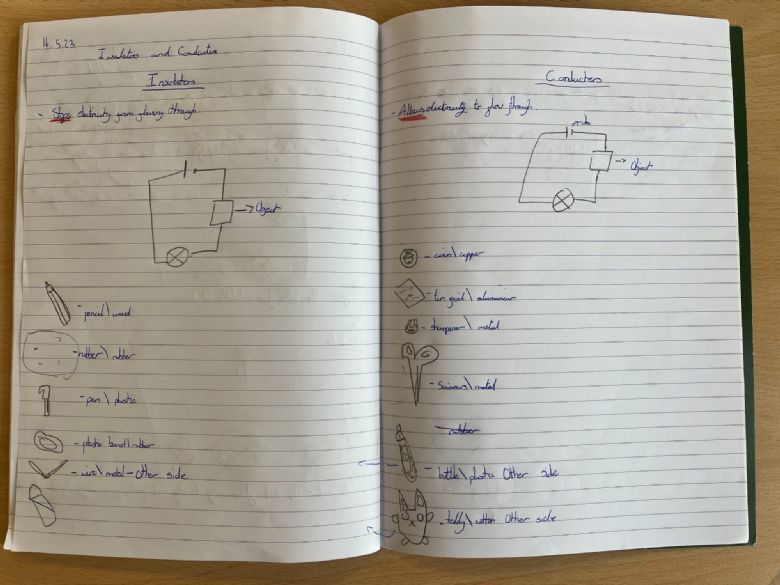 16.5.23
Insulators and Conductors
Insulators
- Stops electricity from flowing through.
→ Object
- pencil \ wood
- rubber \ rubber
- pen \ plastic
- plastic band \ rubber
- wire \ metal - Other side
Conductors
- Allows electricity to flow through.
→ Object
- coin \ copper
- tin foil \ aluminium
- sharpener \ metal
- Scissors \ metal
- rubber
- bottle \ plastic Other side
- teddy \ cotton Other side